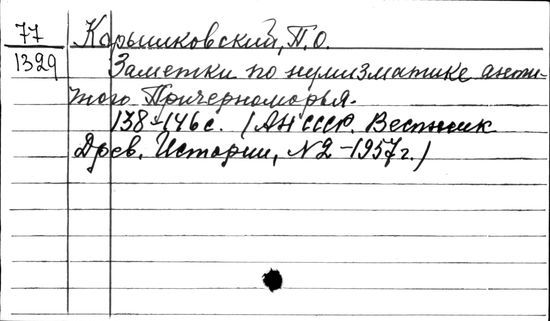 77 Карышковский, П.О.
1329 Заметки по нумизматике анти-
чного Причерноморья.
138-146 с. (АН СССР. Вестник
Древ. Истории, N2-1957г.)